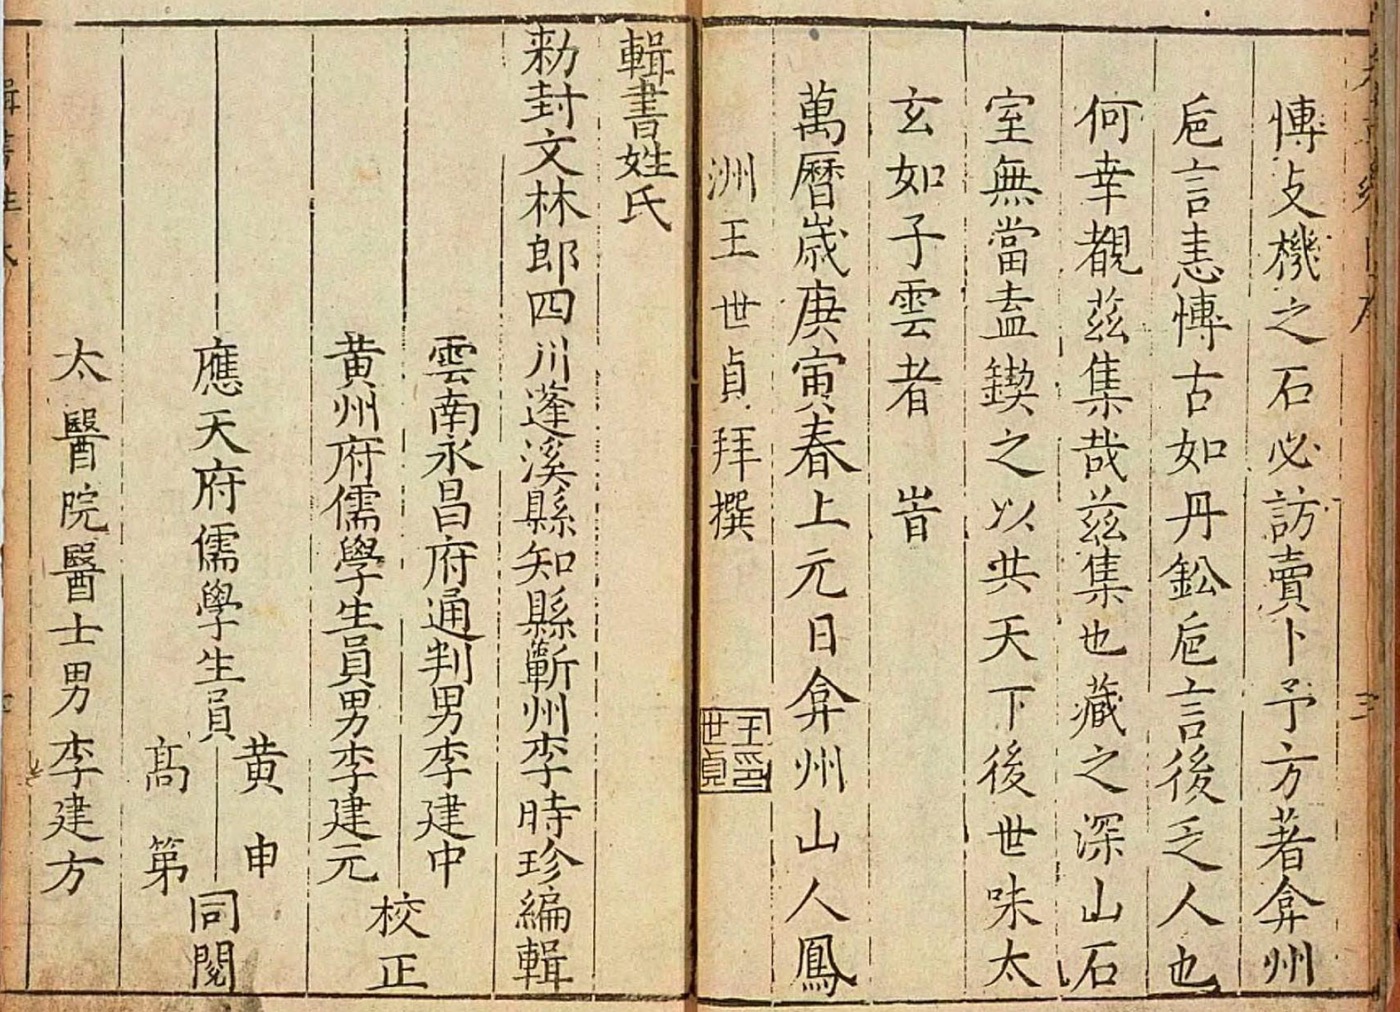 愽攴機之石必訪賣卜予方著弇州
巵言恚愽古如丹鈆巵言後乏人也
何幸覩茲集哉茲集也藏之深山石
室無當盍鍥之以共天下後世味太
玄如子雲者 旹
萬曆嵗庚寅春上元日弇州山人鳳
洲王世貞拜撰
王印世貞
輯書姓氏
勑封文林郎四川蓬溪縣知縣蘄州李時珍編輯
雲南永昌府通判男李建中
黄州府儒學生員男李建元
校正
應天府儒學生員
黄申
髙第
同閱
太醫院醫士男李建方